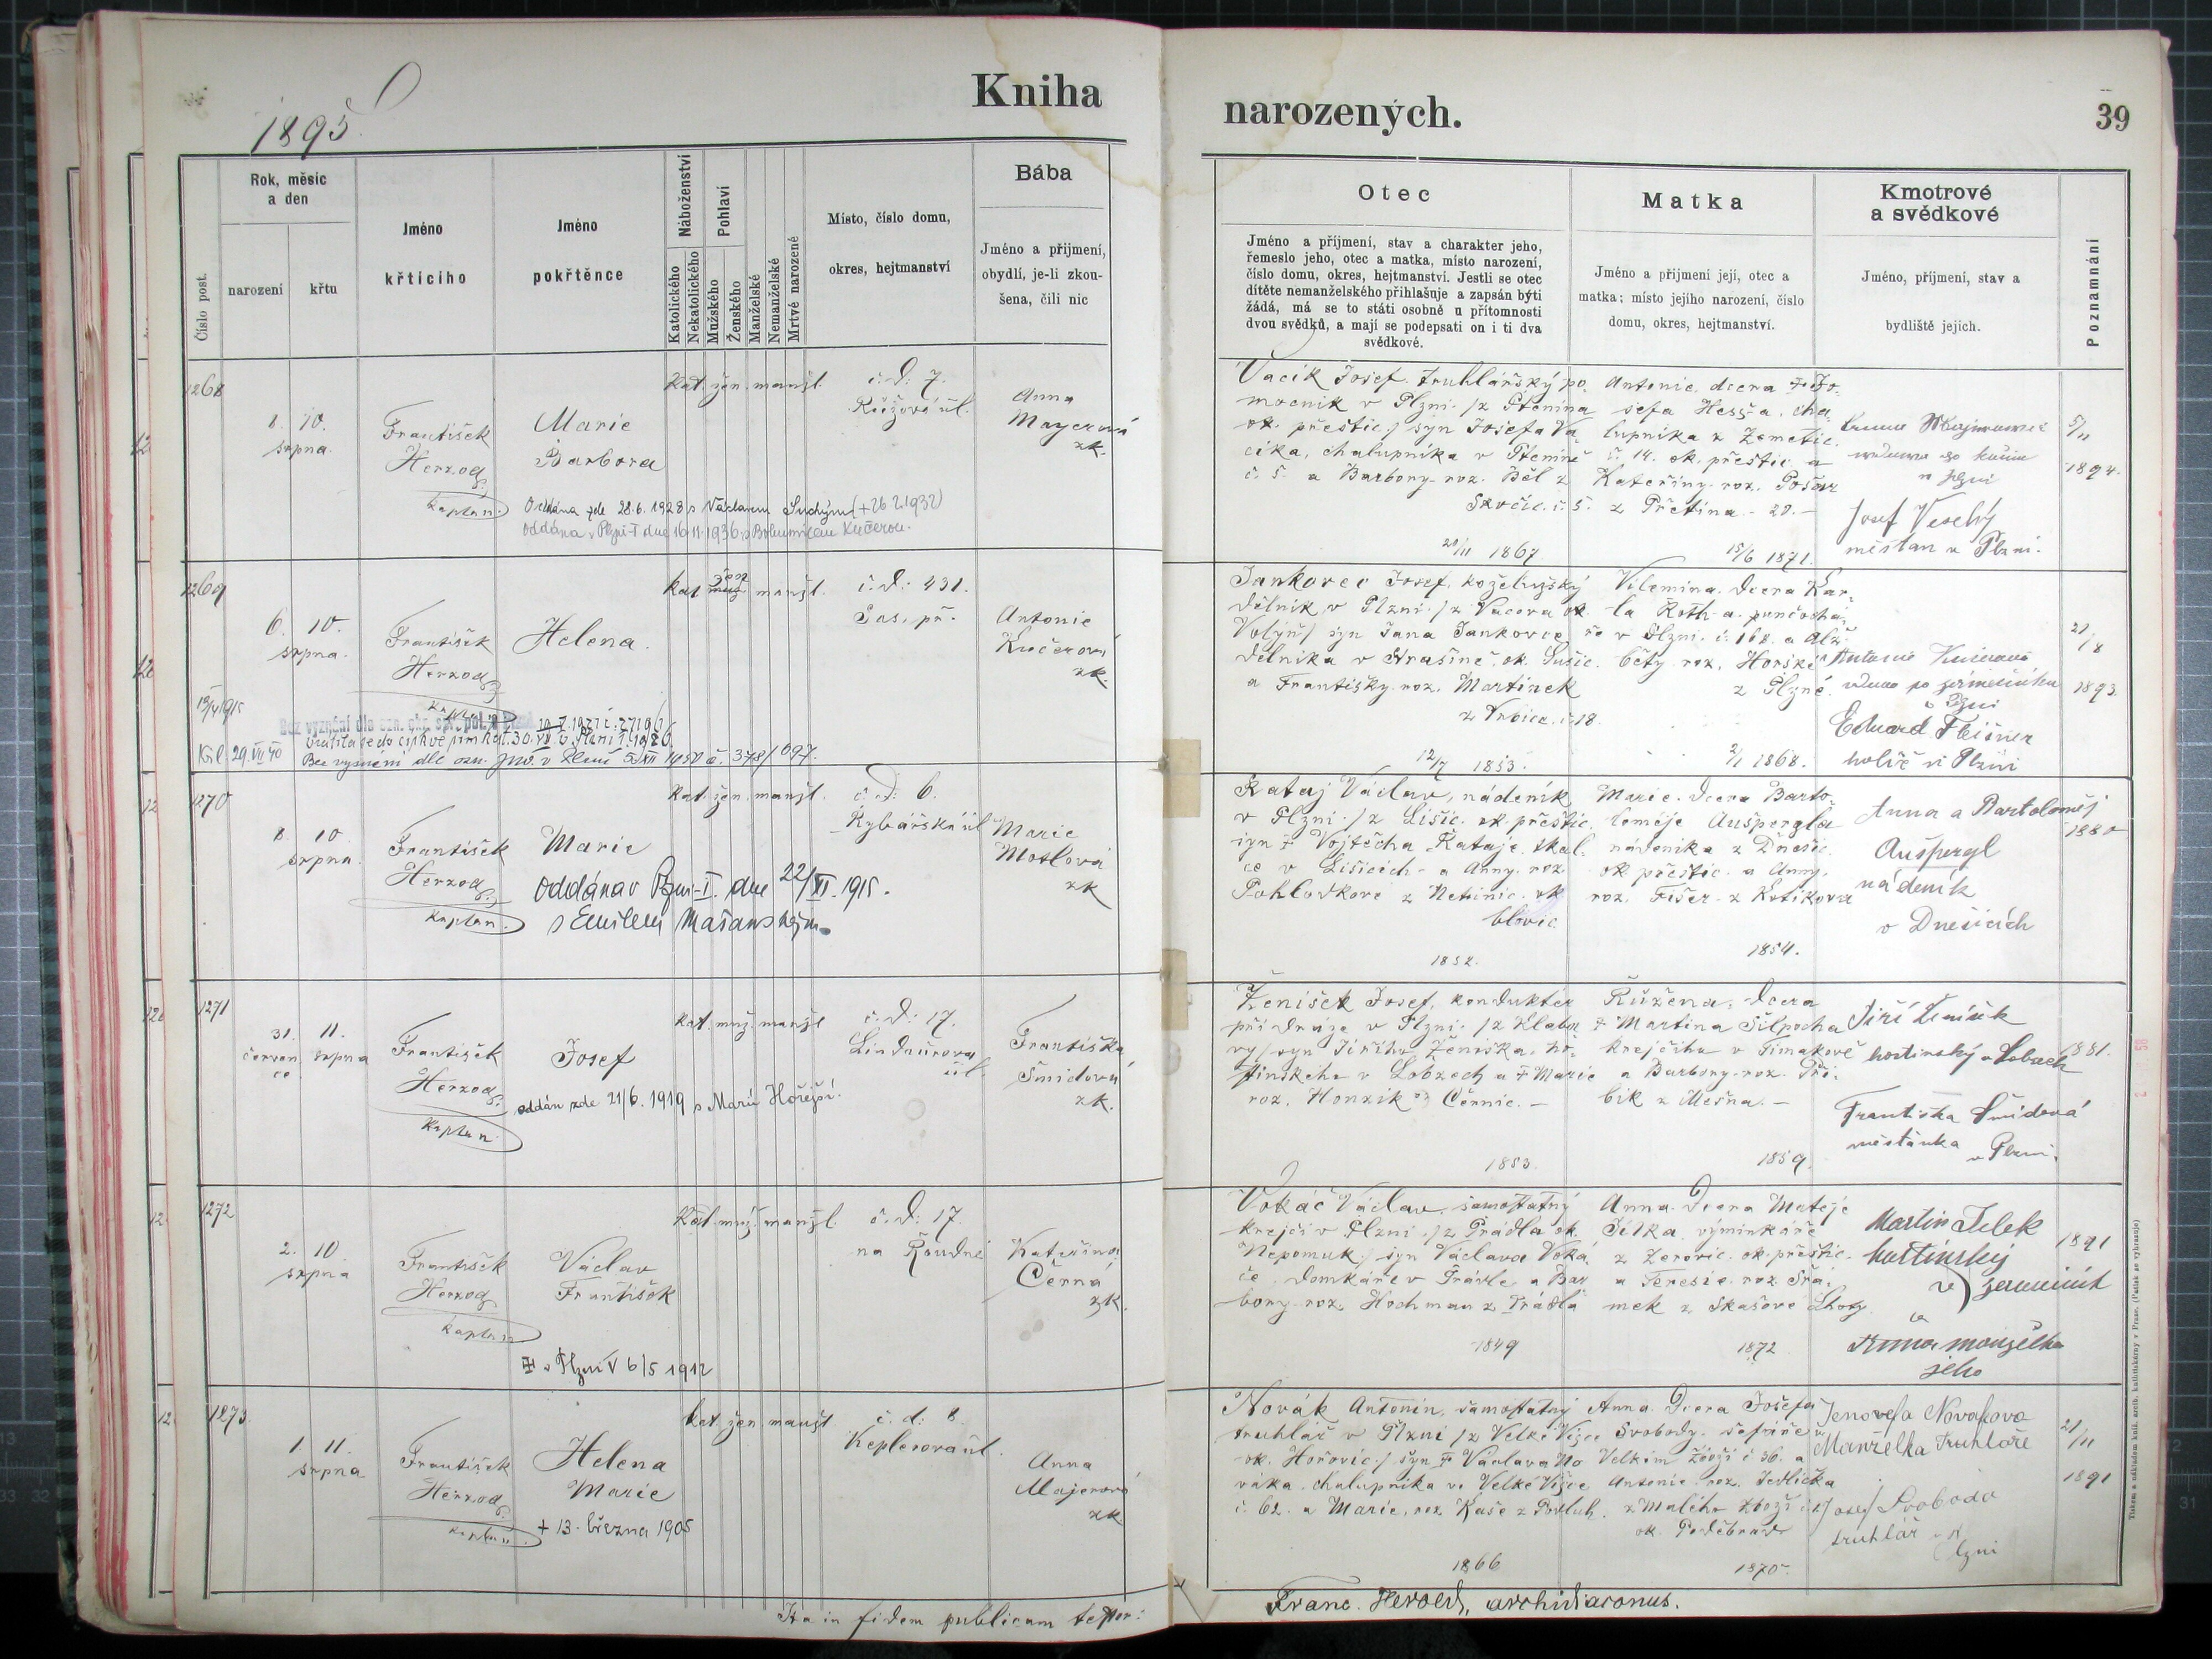 Kniha
1895.
Rok, měsíc
a den
Číslo post.
narození
křtu
Jméno
křtícího
Jméno
pokřtěnce
Náboženství
Katolického
Nekatolického
Pohlaví
Mužského
Ženského
Manželské
Nemanželské
Mrtvě narozené
Místo, číslo domu,
okres, hejtmanství
Bába
Jméno a přijmení,
obydlí, je-li zkou-
šena, čili nic
1268
8. 10.
srpna.
František
Herzog
kaplan.
Marie
Barbora
Kat. žen. manžl.
č. d. 7.
Růžová ul.
Anna
Mayerová
zk.
Oddána zde 28.6.1928 s Václavem Suchým (+26.2.1932)
oddána v Plzni-I dne 16.11.1936 s Bohumilem Kučerou.
1269
6. 10.
srpna.
František
Herzog
kaplan
Helena.
kat. žen. manžl.
č. d: 431.
Sas. př.
Antonie
Kučerová
zk.
Vrátila se do církve řím. kat. 30. VII.
Bez vyznání dle ozn. JNV. v Plzni 5. XII 1950 č. 378/697.
1270
8. 10
srpna.
František
Herzog
kaplan.
Marie
Kat. žen. manžl.
č. d: 6.
Rybářská ul
Marie
Motlová
zk
oddána v Plzni-I. dne 22/XI. 1915.
s Emilem Mašanským.
1271
31. 11.
červen srpna
ce
František
Herzog
Kaplan.
Josef
Kat. muž. manžl
č. d: 17.
Lindauerova
ul.
Františka
Šmídová
zk.
oddán zde 21/6. 1919 s Marií Hořejší.
1272
2. 10
srpna
František
Herzog
kaplan
Václav
František
Kat. muž. manžl.
č. d: 17.
na Roudné
Kateřina
Černá
zk.
v Plzni V 6/5 1912
1273.
1. 11.
srpna
František
Herzog
kaplan.
Helena
Marie
kat. žen. manžl
č. d: 8.
Keplerova ul.
Anna
Majerová
zk.
+ 13. března 1905
Ita in fidem publicam testor:
narozených.
39
Otec
Jméno a příjmení, stav a charakter jeho,
řemeslo jeho, otec a matka, místo narození,
číslo domu, okres, hejtmanství. Jestli se otec
dítěte nemanželského přihlašuje a zapsán býti
žádá, má se to státi osobně u přítomnosti
dvou svědků, a mají se podepsati on i ti dva
svědkové.
Matka
Jméno a přijmení její, otec a
matka; místo jejího narození, číslo
domu, okres, hejtmanství.
Kmotrové
a svědkové
Jméno, příjmení, stav a
bydliště jejich.
Poznamnání
Vacík Josef, truhlářský po-
mocník v Plzni /z Ptenína
ok. přeštic./ syn Josefa Va-
cíka, chalupníka v Pteníně
č. 5. a Barbory roz. Běl z
Skočic. č. 5.
20/11 1867
Antonie, dcera + Jo-
sefa Hessa, cha-
lupníka z Zemětic
č. 14. ok. přeštic. a
Kateřiny roz. Pošar
z Přetína. - 20. -
15/6 1871.
v Plzni
Josef Veselý
měšťan v Plzni.
5/11
1894.
Jankovec Josef, koželužský
dělník v Plzni /z Vacova ok.
Volyň/ syn Jana Jankovce
dělníka v Strašíně ok. Sušic.
a Františky roz. Martínek
z Vrbice. č. 18.
12/7 1853.
Vilemína, dcera Kar-
la Roth-a, punčochá-
ře v Plzni. č. 168. a Alž-
běty roz. Horské
z Plzně.
2/1 1868.
Antonie Kučerová
vdova po
v Plzni
Eduard Fleišner
holič v Plzni
21/8
1893.
Kataj Václav, nádeník
v Plzni /z Lišic. ok. přeštic.
syn + Vojtěcha Kataje, skal-
ce v Lišicích a Anny roz.
Pohlodkové z Netunic. ok
blovic.
1852.
Marie, dcera Barto-
loměje Aušpergla
nádeníka z Dnešic.
ok. přeštic. a Anny
roz. Fišer z Kotíkova
1854.
Anna a Bartoloměj
Aušpergl
nádeník
v Dnešicích
1880
Ženíšek Josef, konduktér
při dráze v Plzni /z Klabavy
/ syn Jiřího Ženíška, ho-
stinského v Lobzech a + Marie
roz. Honzík z Černic. -
1853.
Růžena, dcera
+ Martina Šilpocha
krejčího v Timákově
a Barbory roz. Při-
bík z Mešna. -
1859.
Jiří Ženíšek
hostinský v Lobzech
Františka Šmídová
měšťanka
v Plzni.
1881.
Vokáč Václav, samostatný
krejčí v Plzni /z Prádla ok.
Nepomuk,/ syn Václava Voká-
če, domkáře v Prádle a Bar
bory roz. Hochman z Prádla
1849
Anna, dcera Matěje
Jílka, výminkáře
z Žerovic. ok. přeštic.
a Teresie roz. Šrá-
mek z Skašové Lhoty.
1872
Martin Jelek
hostinský
v
a
Anna manželka
jeho
1891
Novák Antonín, samostatný
truhlář v Plzni /z Velké Víske
ok. Hořovic./ syn + Václava No
váka, chalupníka ve Velké Vísce
č. 62. a Marie, roz. Kaše z Podluh.
1866
Anna, dcera Josefa
Svobody, šafáře v
Velkém Zboží č. 36. a
Antonie roz. Jedlička
z Malého Zboží
ok. Poděbrad
1870.
Jenovefa Novákova
Manželka truhláře
Josef Svoboda
truhlář v
Plzni
21/11
1891
Franc. Herold, archidiaconus.